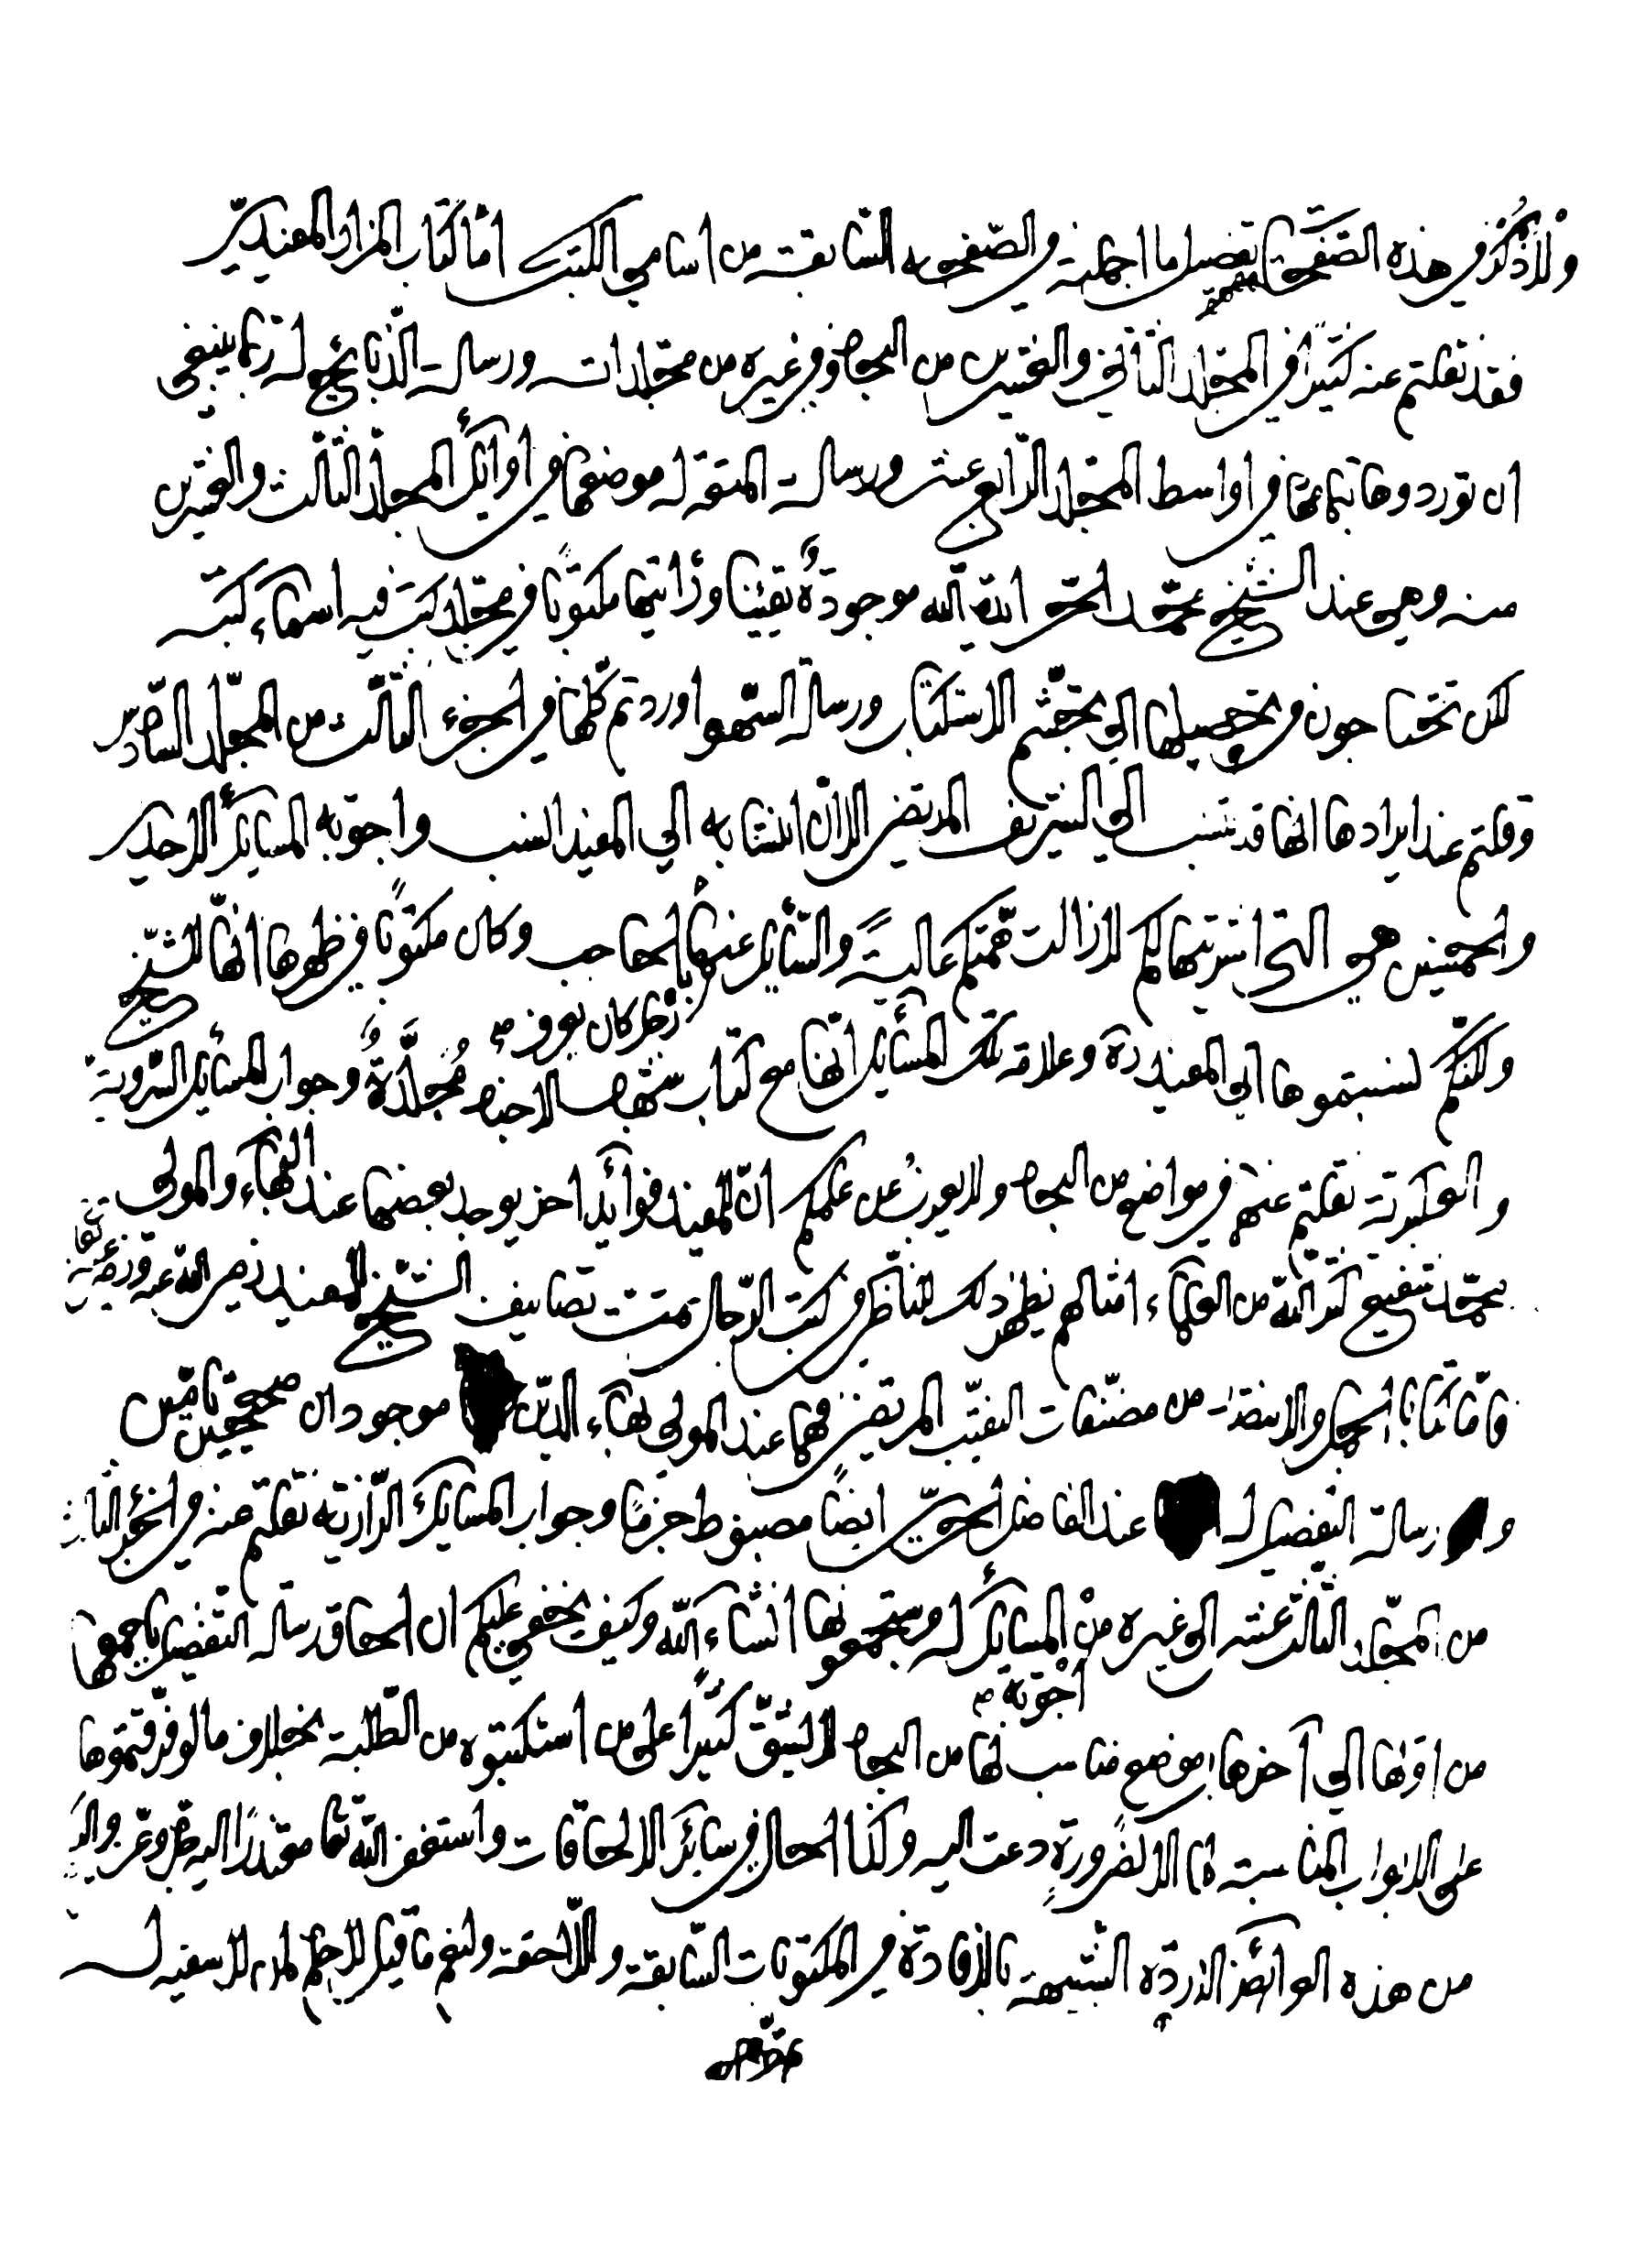 ولأذكر في هذه الصفحة تفصيل ما اجملته في الصفحة السابقة من اسامي الكتب اما كتاب المزار للمفيد
فقد نقلتم عنه كثيرا في المجلد الثاني والعشرين من البحار وفي غيره من مجلدات ورسالة الذبايح له ربما ينبغي
ان توردوها بتمامها في اواسط المجلد الرابع عشر ورسالة المتعة له موضعها في اوايل المجلد الثالث والعشرين
منه وهي عند الشيخ محمد الحر ابقاه الله موجودة يقينا ورأيتها مكتوبا في مجلد كتب فيه اسماء كتبه
لكن تحتاجون في تحصيلها الى تجشم الاستكتاب ورسالة السهو اوردتم كلها في الجزء الثالث من المجلد السادس
وقلتم عند ايرادها انها قد تنسب الى الشريف المرتضى الا ان انتسابه الى المفيد انسب واجوبة المسايل الاحدى
والخمسين هي التي اشتريتها لكم لا زالت همتكم عالية والسايل عنها الحاجب وكان مكتوبا في ظهرها انها للشيخ
رجل كان يعرف صح
ولكنكم نسبتموها الى المفيد ره وعلامة تلك المسايل انها مع كتاب شهاب الاخبار مجلدة وجواب المسايل السروية
والعكبرية نقلتم عنهم في مواضع من البحار ولا يعزب عن علمكم ان للمفيد فوائد اخر يوجد بعضها عند البهاء والمولى
محمد شفيع كثر الله من العلماء امثالهم يظهر ذلك للناظر في كتب الرجال تمت تصانيف الشيخ المفيد رضي الله عنه
فاما كتابا الجمل والانتصار من مصنفات النقيب المرتضى فهما عند المولى بهاء الدين موجودان صحيحين تامين
و رسالة التفضيل له عند الفاضل الحر ايضا مضبوط جزما وجواب المسايل الرازية نقلتم منه في الجزء الثالث
من المجلد الثالث عشر الى غيره من المسايل له وستجمعونها انشاء الله وكيف يخفى عليكم ان الحاق رسالة التفضيل باجمعها
اجوبة صح
من اولها الى آخرها بموضع مناسب لها من البحار لا يشق كثيرا على من استكتبوه من الطلبة بخلاف ما لو فرقتموها
على الابواب المناسبة لها الا لضرورة دعت اليه وكذا الحال في سائر الالحاقات واستغفر الله تعا معتذرا اليه
من هذه السابقة واللاحقة ولنعم ما قيل